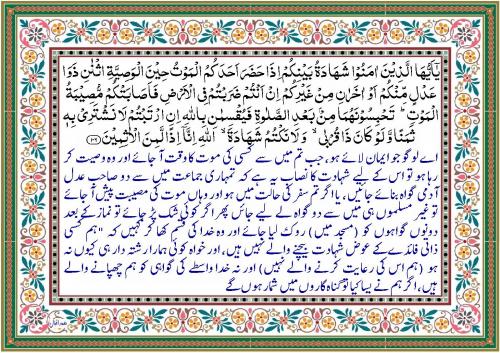 يٰۤاَيُّهَا الَّذِيْنَ اٰمَنُوْا شَهَادَةُ بَيْنِكُمْ اِذَا حَضَرَ اَحَدَكُمُ الْمَوْتُ حِيْنَ الْوَصِيَّةِ اثْنٰنِ ذَوَا
عَدْلٍ مِّنْكُمْ اَوْ اٰخَرٰنِ مِنْ غَيْرِكُمْ اِنْ اَنْتُمْ ضَرَبْتُمْ فِى الْاَرْضِ فَاَصَابَتْكُمْ مُّصِيْبَةُ
الْمَوْتِ ؕ تَحْبِسُوْنَهُمَا مِنْۢ بَعْدِ الصَّلٰوةِ فَيُقْسِمٰنِ بِاللّٰهِ اِنِ ارْتَبْتُمْ لَا نَشْتَرِىْ بِهٖ
ثَمَنًا وَّلَوْ كَانَ ذَا قُرْبٰى ۙ وَلَا نَكْتُمُ شَهَادَةَ ۙ اللّٰهِ اِنَّاۤ اِذًا لَّمِنَ الْاٰثِمِيْنَ ﴿۱۰۶﴾
اے لوگو جو ایمان لائے ہو، جب تم میں سے کسی کی موت کا وقت آ جائے اور وہ وصیت کر
رہا ہو تو اس کے لیے شہادت کا نصاب یہ ہے کہ تمہاری جماعت میں سے دو صاحب عدل
آدمی گواہ بنائے جائیں، یا اگر تم سفر کی حالت میں ہو اور وہاں موت کی مصیبت پیش آ جائے
تو غیر مسلموں ہی میں سے دو گواہ لے لیے جائیں پھر اگر کوئی شک پڑ جائے تو نماز کے بعد
دونوں گواہوں کو (مسجد میں) روک لیا جائے اور وہ خدا کی قسم کھا کر کہیں کہ "ہم کسی
ذاتی فائدے کے عوض شہادت بیچنے والے نہیں ہیں، اور خواہ کوئی ہمارا رشتہ دار ہی کیوں نہ
ہو (ہم اس کی رعایت کرنے والے نہیں) اور نہ خدا واسطے کی گواہی کو ہم چھپانے والے
ہیں، اگر ہم نے ایسا کیا تو گناہ گاروں میں شمار ہوں گے